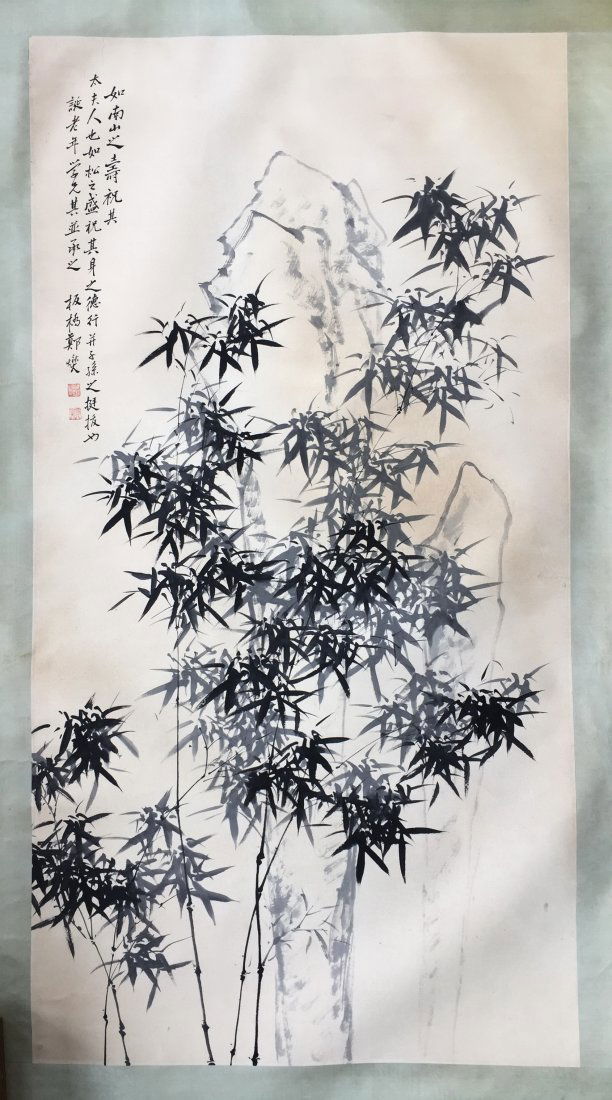 如南山之壽祝其
太夫人也如松之盛祝其身之德行并子孫之挺拔也
誕老年學兄其並承之 板橋鄭燮